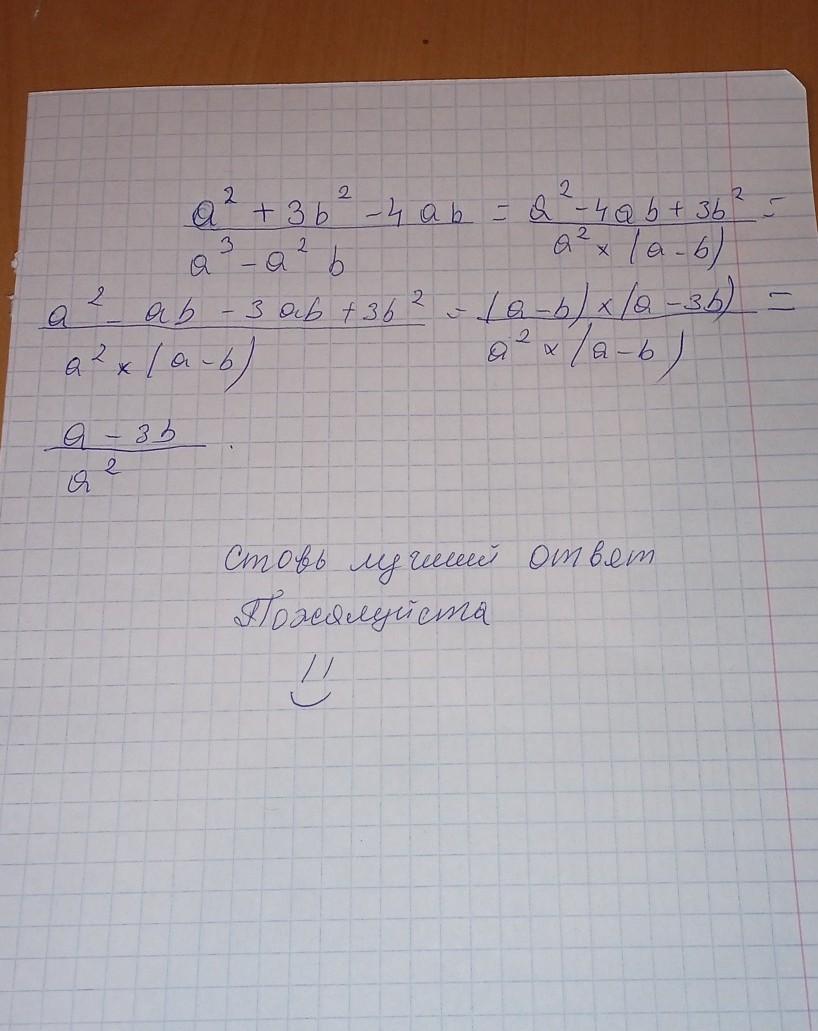 a² + 3b² - 4ab / a³ - a²b = a² - 4ab + 3b² / a² × (a - b) =
a² - ab - 3ab + 3b² / a² × (a - b) = (a - b) × (a - 3b) / a² × (a - b) =
a - 3b / a² .
Стовь лучший ответ
Пожалуйста